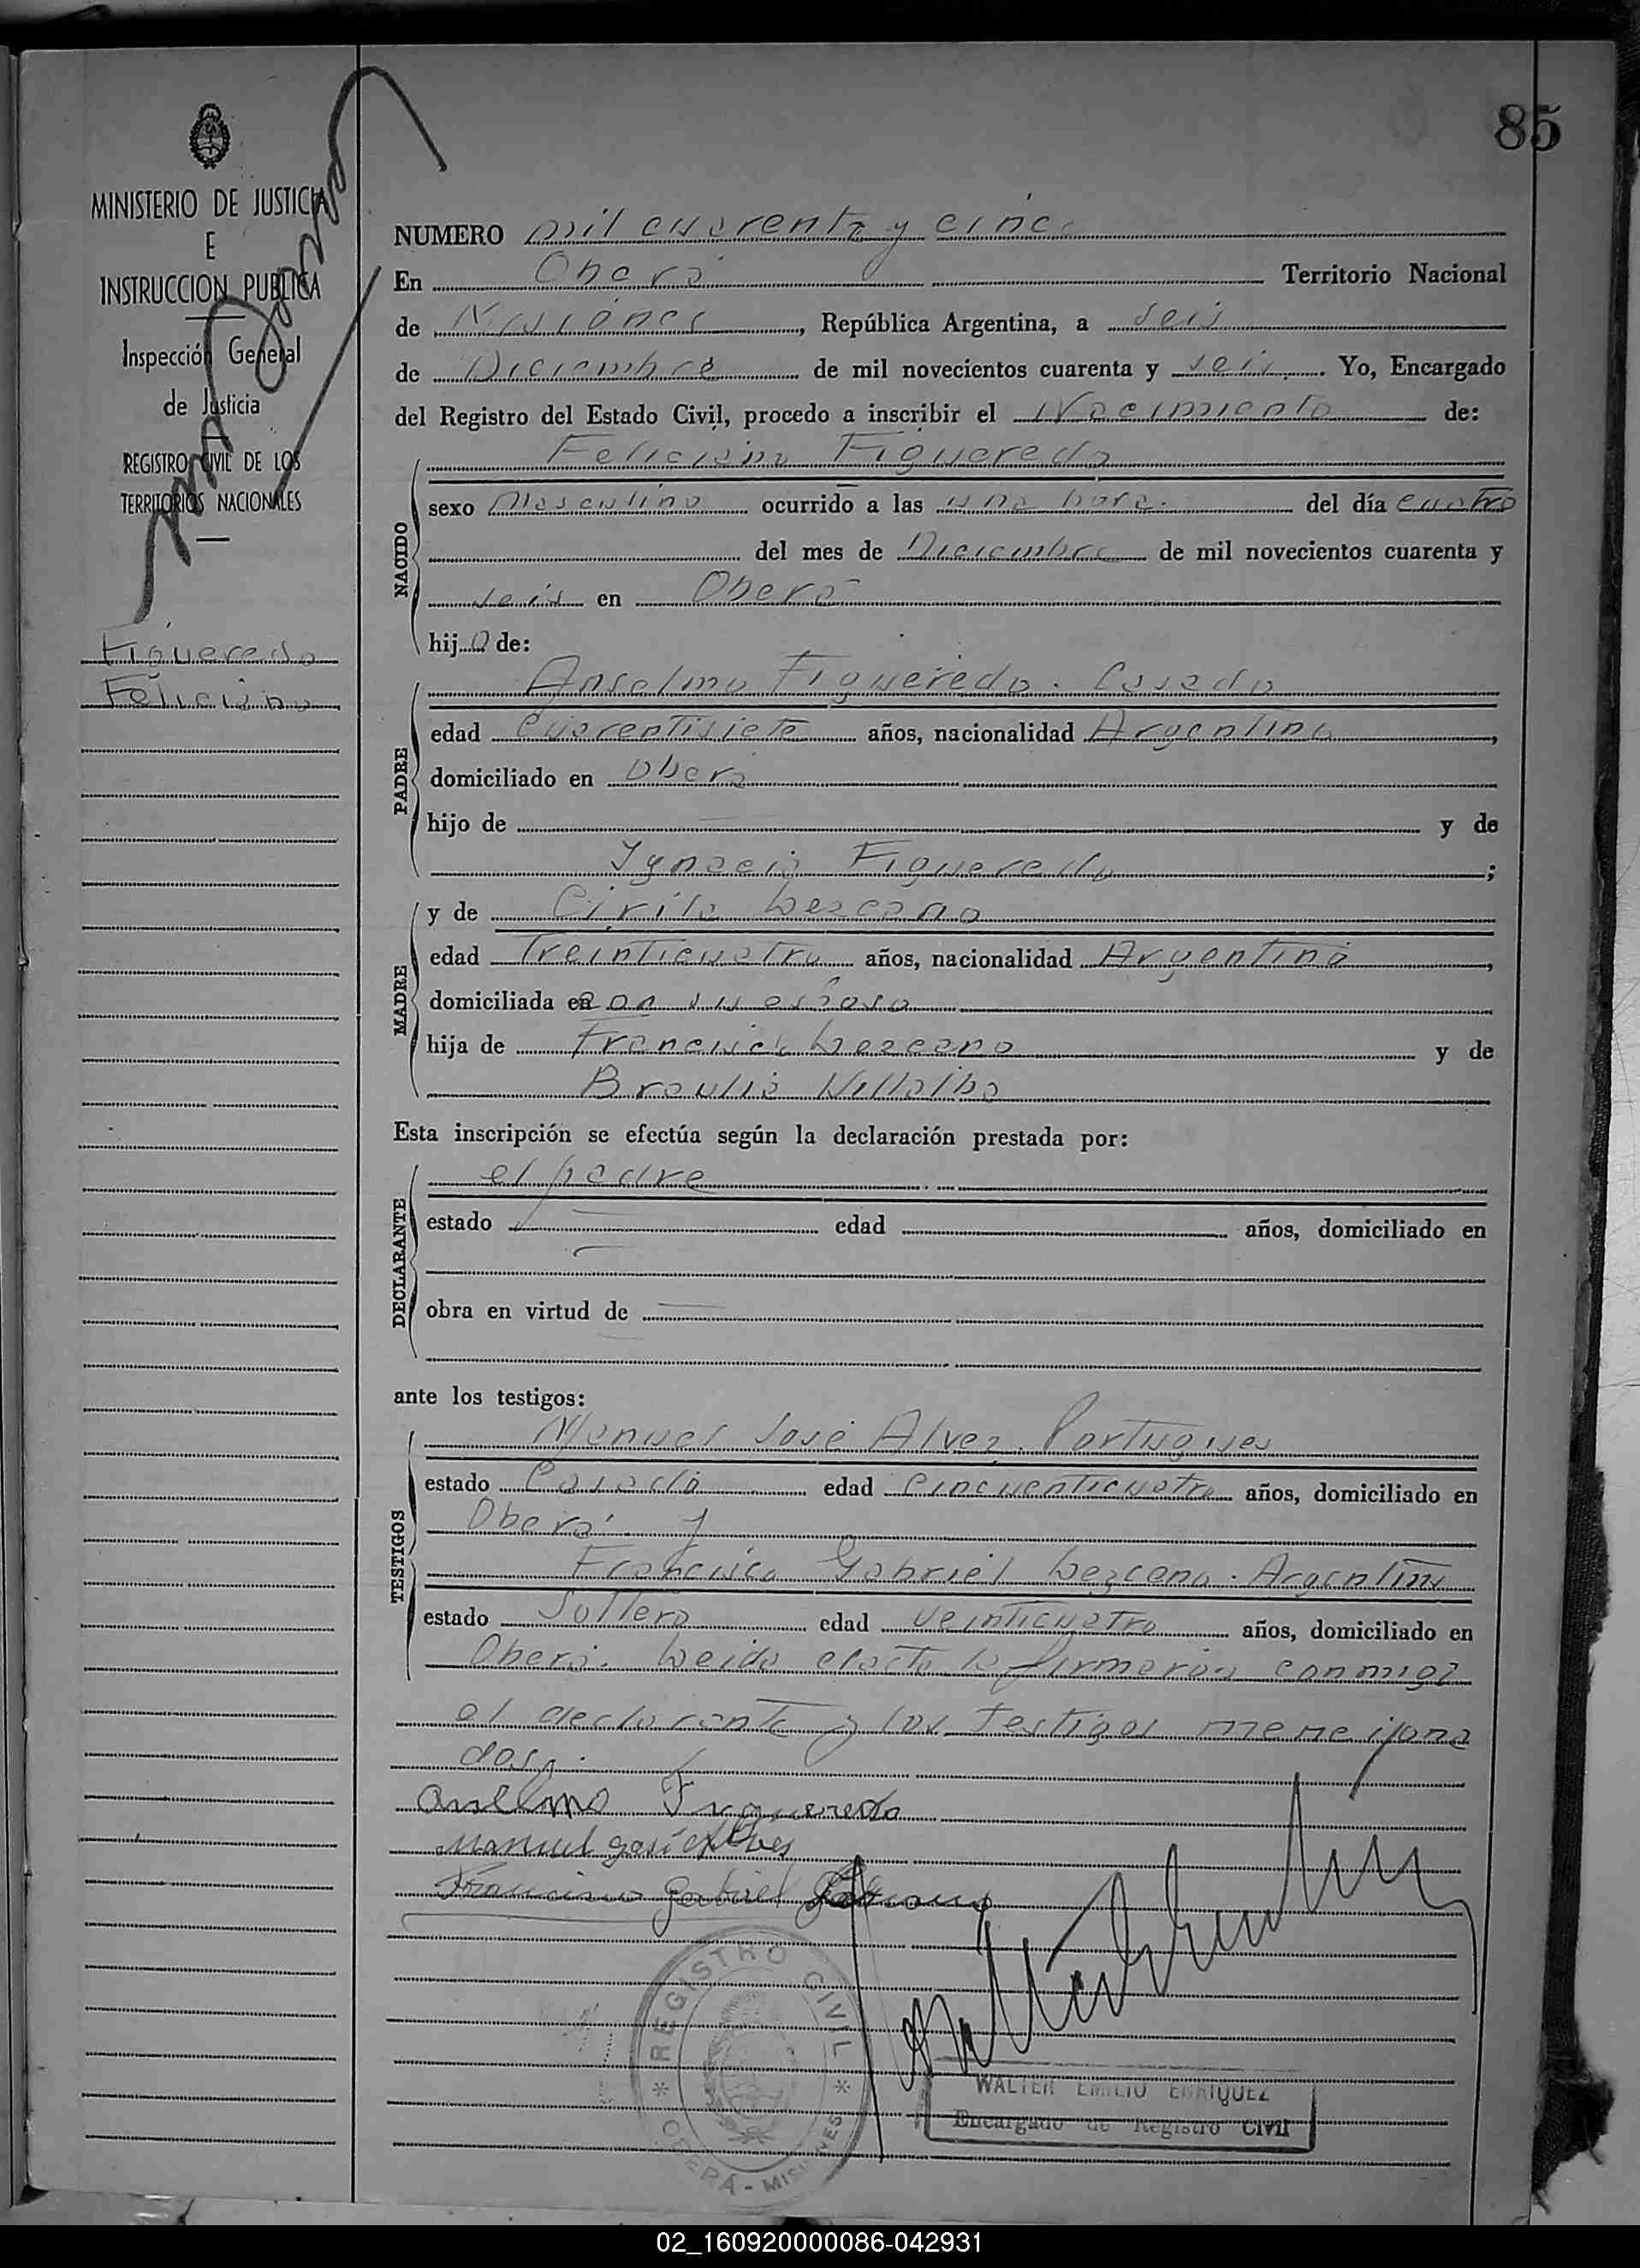 85
MINISTERIO DE JUSTICIA
E
INSTRUCCION PUBLICA
Inspección General
de Justicia
REGISTRO CIVIL DE LOS
TERRITORIOS NACIONALES
Figueredo
Feliciano
NUMERO mil cuarenta y cinco
En Oberá Territorio Nacional
de Misiones, República Argentina, a seis
de Diciembre de mil novecientos cuarenta y seis. Yo, Encargado
del Registro del Estado Civil, procedo a inscribir el Nacimiento de:
NACIDO
Feliciano Figueredo
sexo Masculino ocurrido a las una hora. del día cuatro
del mes de Diciembre de mil novecientos cuarenta y
seis en Oberá
hijo de:
PADRE
Anselmo Figueredo. Casado
edad Cuarentisiete años, nacionalidad Argentino,
domiciliado en Oberá
hijo de — y de
Ygnacia Figueredo;
MADRE
y de Cirila Lezcano
edad Treinticuatro años, nacionalidad Argentina,
domiciliada en con su esposo
hija de Francisco Lezcano y de
Braulia Villalba
Esta inscripción se efectúa según la declaración prestada por:
DECLARANTE
el padre
estado — edad años, domiciliado en
—
obra en virtud de —
ante los testigos:
TESTIGOS
Manuel José Alvez. Portugues
estado Casado edad Cincuenticuatro años, domiciliado en
Oberá y
Francisco Gabriel Lezcano. Argentino
estado Soltero edad veinticuatro años, domiciliado en
Oberá. Leida el acta la firmaron conmigo
el declarante y los testigos mencijona
dos.
Anselmo Figueredo
Manuel José Alves
Francisco Gabriel
REGISTRO CIVIL
OBERÁ - MISIONES
WALTER EMILIO ENRIQUEZ
Encargado de Registro Civil
02_160920000086-042931